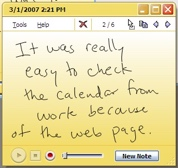 3/1/2007 2:21 PM
Tools Help 2 / 6
It was really
easy to check
the calendar from
work because
of the web page.
New Note